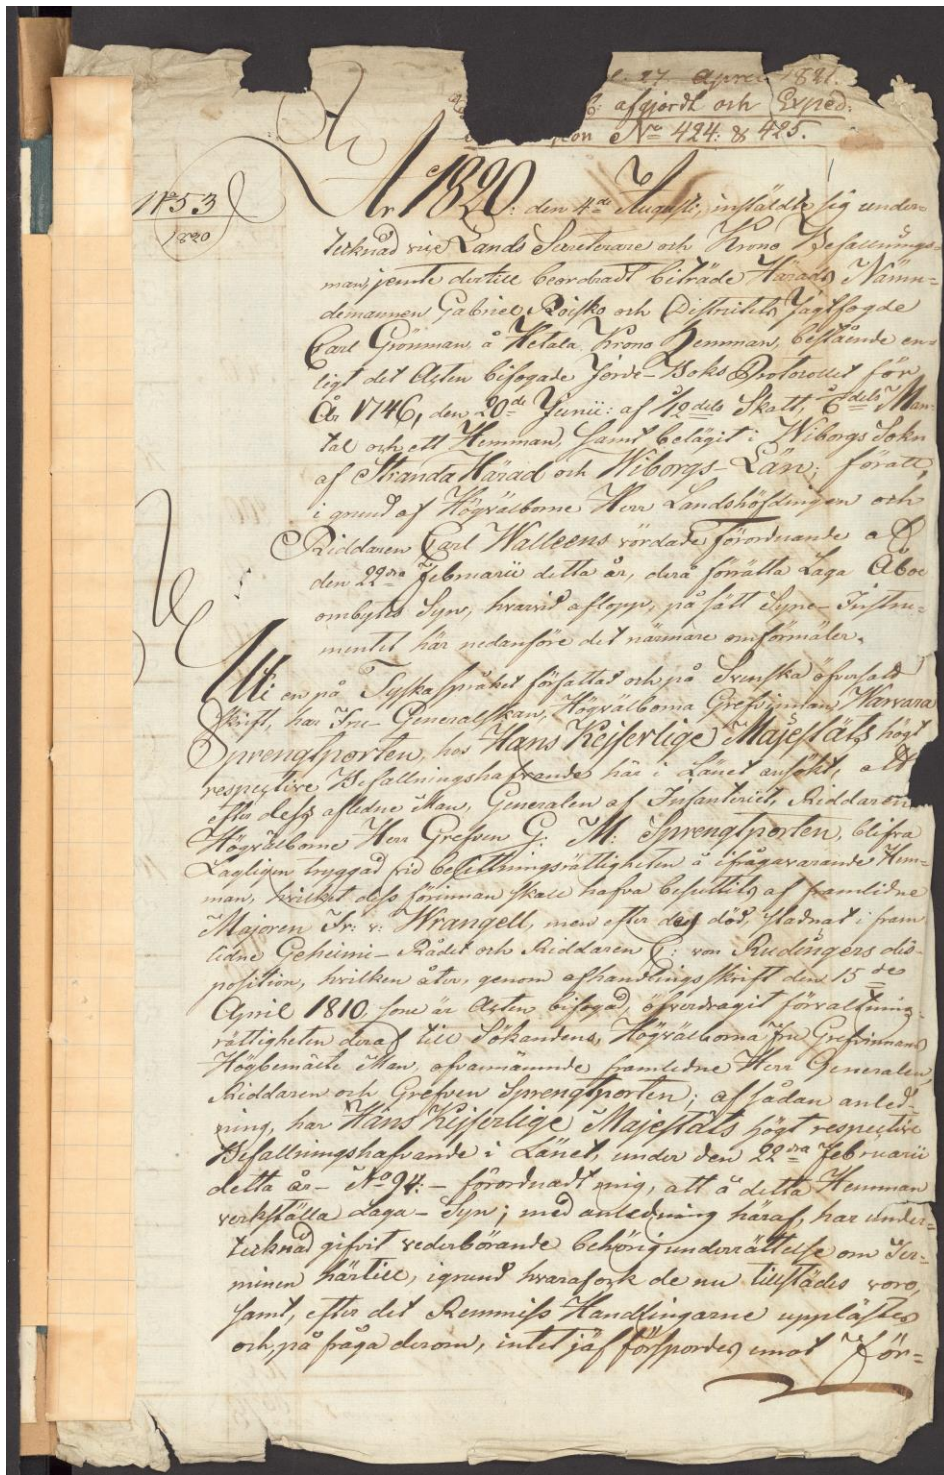 27 April 1821.
afgjordt och Exped:
No 424: & 425.
No 53
1820
År 1820: den 4de Augusti, instälde sig under-
tecknad vice Lands Secreterare och Krono Befallnings-
man, jemte dertill beordradt biträde Härads Nämn-
demannen Gabriel Roisko och Districtets Jagtfogde
Carl Grönman, å Hetala Krono Hemman, bestående en-
ligt det Acten bifogade Jorde-Boks Protocollet för
År 1746, den 20de Junii: af 1/12 dels Skatt, 6 dels Man-
tal och ett Hemman, samt belägit i Wiborgs Sokn
af Stranda Härad och Wiborgs-Län; för att,
i grund af Högvälborne Herr Landshöfdingen och
Riddaren Carl Walleens vördade förordnande af
den 22dra Februarii detta år, derå förrätta Laga Åboe
ombytes Syn, hvarvid aflopp, på sätt Syne-Instru-
mentet här nedanföre det närmare omförmäler.
Uti en på Tyska språket författad och på Svenska öfversatt
Skrift, har Fru Generalskan, Högvälborna Grefvinnan Warvara
Sprengtporten, hos Hans Kejserlige Majestäts högt
respective Befallningshafvande här i Länet ansökt, att
efter dess aflidne Man, Generalen af Infanteriet, Riddaren
Högvälborne Herr Grefven G: M: Sprengtporten, blifva
Lagligen tryggad vid besittningsrättigheten å ifrågavarande Hem-
man, hvilket dess förinnan skall hafva besuttits af framlidne
Majoren Fr: v: Wrangell, men efter des död, stadnat i fram-
lidne Geheime-Rådet och Riddaren C: von Rudingers dis-
position, hvilken åter, genom afhandlingsskrift den 15de
April 1810, som är Acten bifogad, öfverdragit förvaltnings-
rättigheten deraf till Sökandens, Högvälborna Fru Grefvinnans
Högbemälte Man, ofvannämnde framlidne Herr Generalen,
Riddaren och Grefven Sprengtporten; af sådan anled-
ning, har Hans Kejserlige Majestäts högt respective
Befallningshafvande i Länet, under den 22dra Februarii
detta år - No 94: - förordnadt mig, att å detta Hemman
verkställa Laga-Syn; med anledning häraf, har under-
tecknad gifvit vederbörande behörig underrättelse om Ter-
minen härtill, i grund hvaraf ock de nu tillstädes voro,
samt, efter det Remmiss Handlingarne upplästes
och, på fråga derom, intet jäf förspordes emot För-